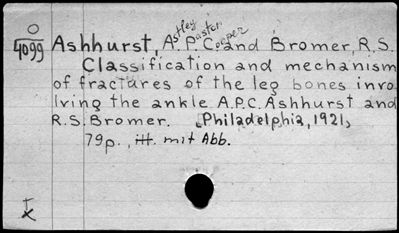 O
4099
Astley Paston Cooper
Ashhurst, A. P. C. and Bromer, R.S.
Classification and mechanism
of fractures of the leg bones invo
lving the ankle A.P.C. Ashhurst and
R.S. Bromer. [Philadelphia, 1921,
79p., ill. mit Abb.
I
X